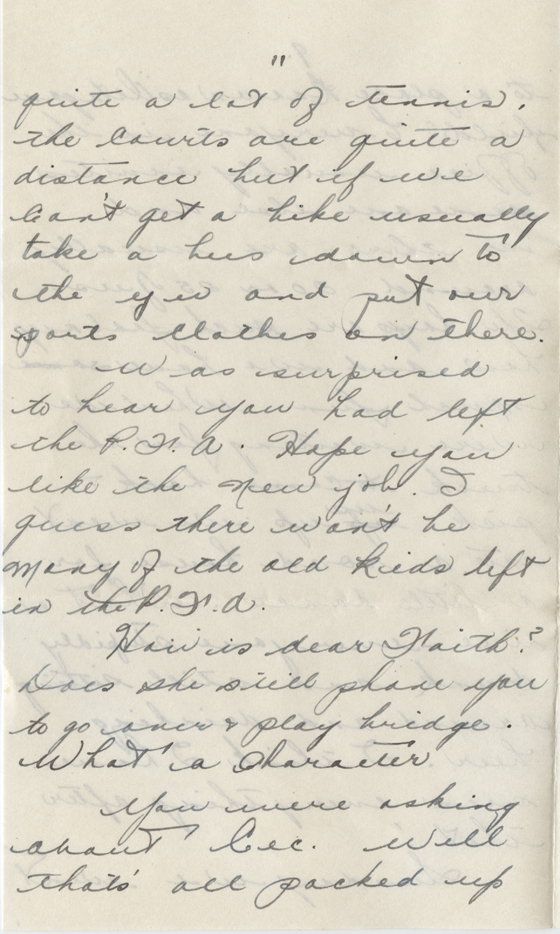 "
quite a lot of tennis.
the courts are quite a
distance but if we
can't get a hike usually
take a bus down to
the y w and put our
sports clothes on there.
Was surprised
to hear you had left
the P.F.A. Hope you
like the new job. I
guess there won't be
many of the old kids left
in the P.F.A.
How is dear Faith?
Does she still phone you
to go over & play bridge.
What a character
You were asking
about Cec. Well
thats' all packed up